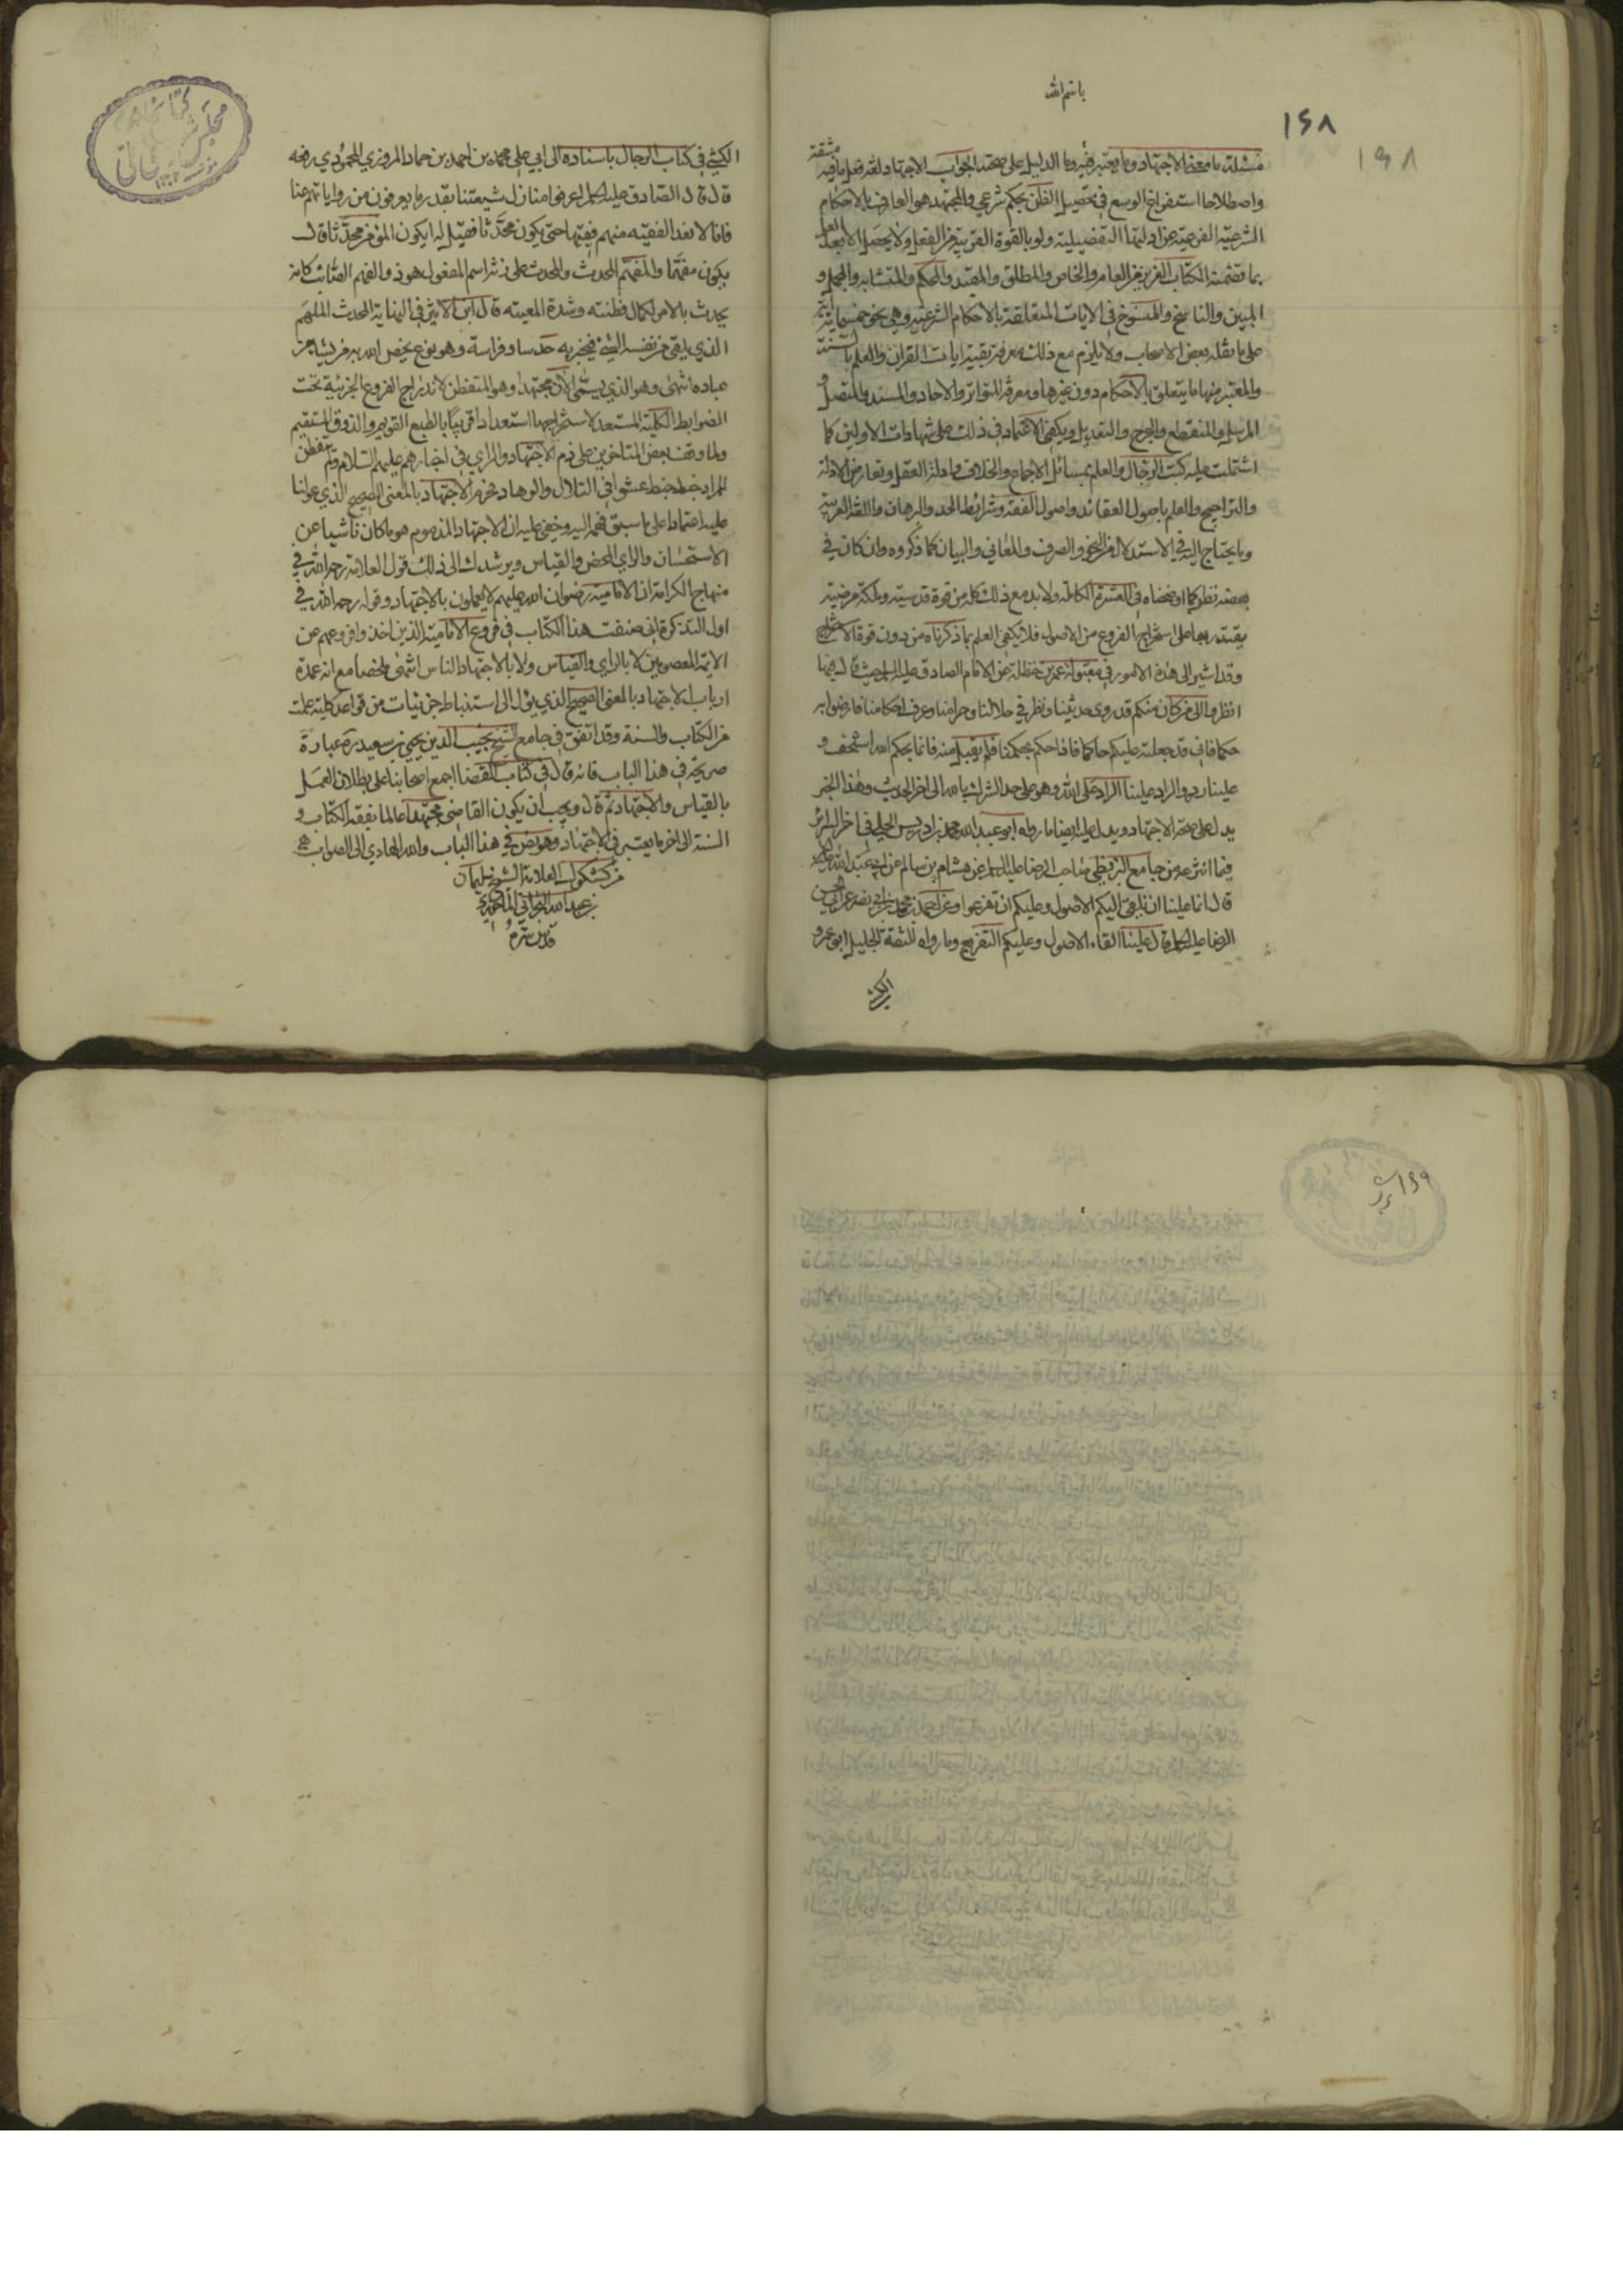 باسم الله
١٤٨
١٩٨
مسئلة ما معنى الاجتهاد وما يعتبر فيه وما الدليل على صحته الجواب الاجتهاد لغة فعل ما فيه مشقة
واصطلاحا استفراغ الوسع في تحصيل الظن بحكم شرعي والمجتهد هو العارف بالاحكام
الشرعية الفرعية عن ادلتها التفصيلية ولو بالقوة القريبة من الفعل ولا يحصل الا بعد العلم
بما تضمنه الكتاب العزيز من العام والخاص والمطلق والمقيد والمحكم والمتشابه والمجمل و
المبين والناسخ والمنسوخ في الايات المتعلقة بالاحكام الشرعية وهي نحو خمسمائة آية
على ما نقله بعض الاصحاب ولا يلزم مع ذلك معرفة بقية ايات القران والعلم بالسنة
والمعتبر منها ما يتعلق بالاحكام دون غيرها ومعرفة المتواتر والاحاد والمسند والمتصل و
المرسل والمنقطع والجرح والتعديل ويكفي الاعتماد في ذلك على شهادات الاولين كما
اشتملت عليه كتب الرجال والعلم بمسائل الاجماع والخلاف وادلة العقل وتعارض الادلة
والتراجيح والعلم باصول العقائد واصول الفقه وشرائط الحد والبرهان واللغة العربية
وما يحتاج اليه في الاستدلال من النحو والصرف والمعاني والبيان كما ذكروه وان كان في
بعضه نظر كما اوضحناه في العشرة الكاملة ولا بد مع ذلك كله من قوة قدسية وملكة مرضية
يقتدر بها على استخراج الفروع من الاصول فلا يكفي العلم بما ذكرناه من دون قوة الاستخراج
وقد اشير الى هذه الامور في مقبولة عمر بن حنظلة عن الامام الصادق عليه السلم حيث قال فيها
انظروا الى من كان منكم قد روى حديثنا ونظر في حلالنا وحرامنا وعرف احكامنا فارضوا به
حكما فاني قد جعلته عليكم حاكما فاذا حكم بحكمنا فلم يقبل منه فانما بحكم الله استخف و
علينا رد والراد علينا الراد على الله وهو على حد الشرك بالله الى اخر الحديث وهذا الخبر
يدل على صحة الاجتهاد ويدل عليه ايضا ما رواه ابو عبد الله محمد بن ادريس الحلي في اخر السرائر
فيما انتزعه من جامع البزنطي صاحب الرضا عليه السلم عن هشام بن سالم عن ابي عبد الله
قال انما علينا ان نلقي اليكم الاصول وعليكم ان تفرعوا وعن احمد بن محمد بن ابي نصر عن ابي الحسن
الرضا عليه السلم قال علينا القاء الاصول وعليكم التفريع وما رواه الثقة الجليل ابو عمرو
الكشي
الكشي في كتاب الرجال باسناده الى ابي علي محمد بن احمد بن حماد المروزي المحمودي رفعه
قال قال الصادق عليه السلم اعرفوا منازل شيعتنا بقدر ما يعرفون من رواياتهم عنا
فانا لا نعد الفقيه منهم فقيها حتى يكون محدثا فقيل له ايكون المؤمن محدثا قال
يكون مفهما والمفهم المحدث والمحدث على زنة اسم المفعول هو ذو الفهم الصائب كانه
يحدث بالامر لكمال فطنته وشدة المعيته قال ابن الاثير في النهاية المحدث الملهم
الذي يلقى في نفسه الشئ فيخبر به حدسا وفراسة وهو نوع يخص الله به من يشاء من
عباده انتهى وهو الذي يسمى الآن مجتهدا وهو المتفطن لاندراج الفروع الجزئية تحت
الضوابط الكلية المستعد لاستخراجها استعدادا قريبا بالطبع القويم والذوق المستقيم
ولما وقف بعض المتاخرين على ذم الاجتهاد والراي في اخبارهم عليهم السلام ولم يتفطن
المراد خبط خبط عشوا في التلال والوهاد فحرم الاجتهاد بالمعنى الصحيح الذي عولنا
عليه اعتمادا على ما سبق فهمه اليه وخفي عليه ان الاجتهاد المذموم هو ما كان ناشيا عن
الاستحسان والراي المحض والقياس ويرشدك الى ذلك قول العلامة رحمه الله في
منهاج الكرامة ان الامامية رضوان الله عليهم لا يعملون بالاجتهاد وقوله رحمه الله في
اول التذكرة اني صنفت هذا الكتاب في فروع الامامية الذين اخذوا فروعهم عن
الائمة المعصومين لا بالراي والقياس ولا بالاجتهاد الناس انتهى ملخصا مع انه عمدة
ارباب الاجتهاد بالمعنى الصحيح الذي يؤل الى استنباط جزئيات من قواعد كلية علمت
من الكتاب والسنة وقد اتفق في جامع الشيخ نجيب الدين يحيى بن سعيد ره عبارة
صريحة في هذا الباب فانه قال في كتاب القضا اجمع اصحابنا على بطلان العمل
بالقياس والاجتهاد ثم قال ويجب ان يكون القاضي مجتهدا عالما بفقه الكتاب و
السنة الى اخر ما يعتبر في الاجتهاد وهو نص في هذا الباب والله الهادي الى الصواب
من كشكول العلامة الشيخ سليمان
بن عبد الله البحراني الماحوزي
قدس سره
١٤٩